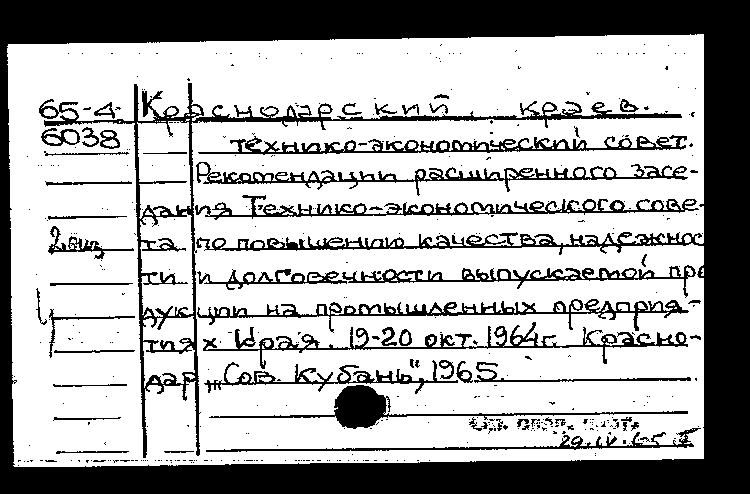 65-4 Краснодарский краев.
6038 технико-экономический совет.
Рекомендации расширенного засе-
дания Технико-экономического сове-
2 экз та по повышению качества, надежнос
ти и долговечности выпускаемой про
дукции на промышленных предприя-
тиях края. 19-20 окт. 1964г. Красно-
дар, „Сов. Кубань", 1965.
29.IV.65